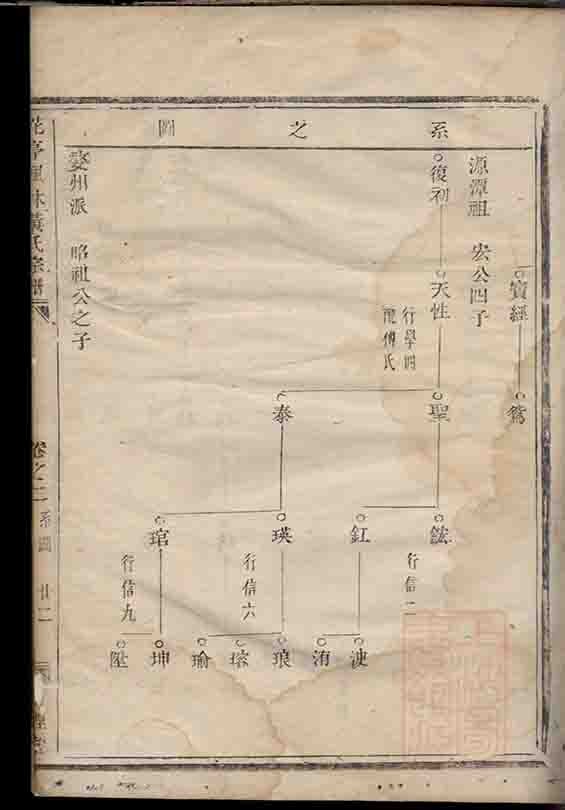 系之圖
寶經
鴛
源潭祖　宏公四子
復初
天性
行學四
配傅氏
聖
泰
鋐
釭
瑛
琯
行信二
行信六
行信九
洓
洧
琅
瑢
瑜
坤
婺州派　昭祖公之子
黃氏宗譜
卷之二
系圖
廿二